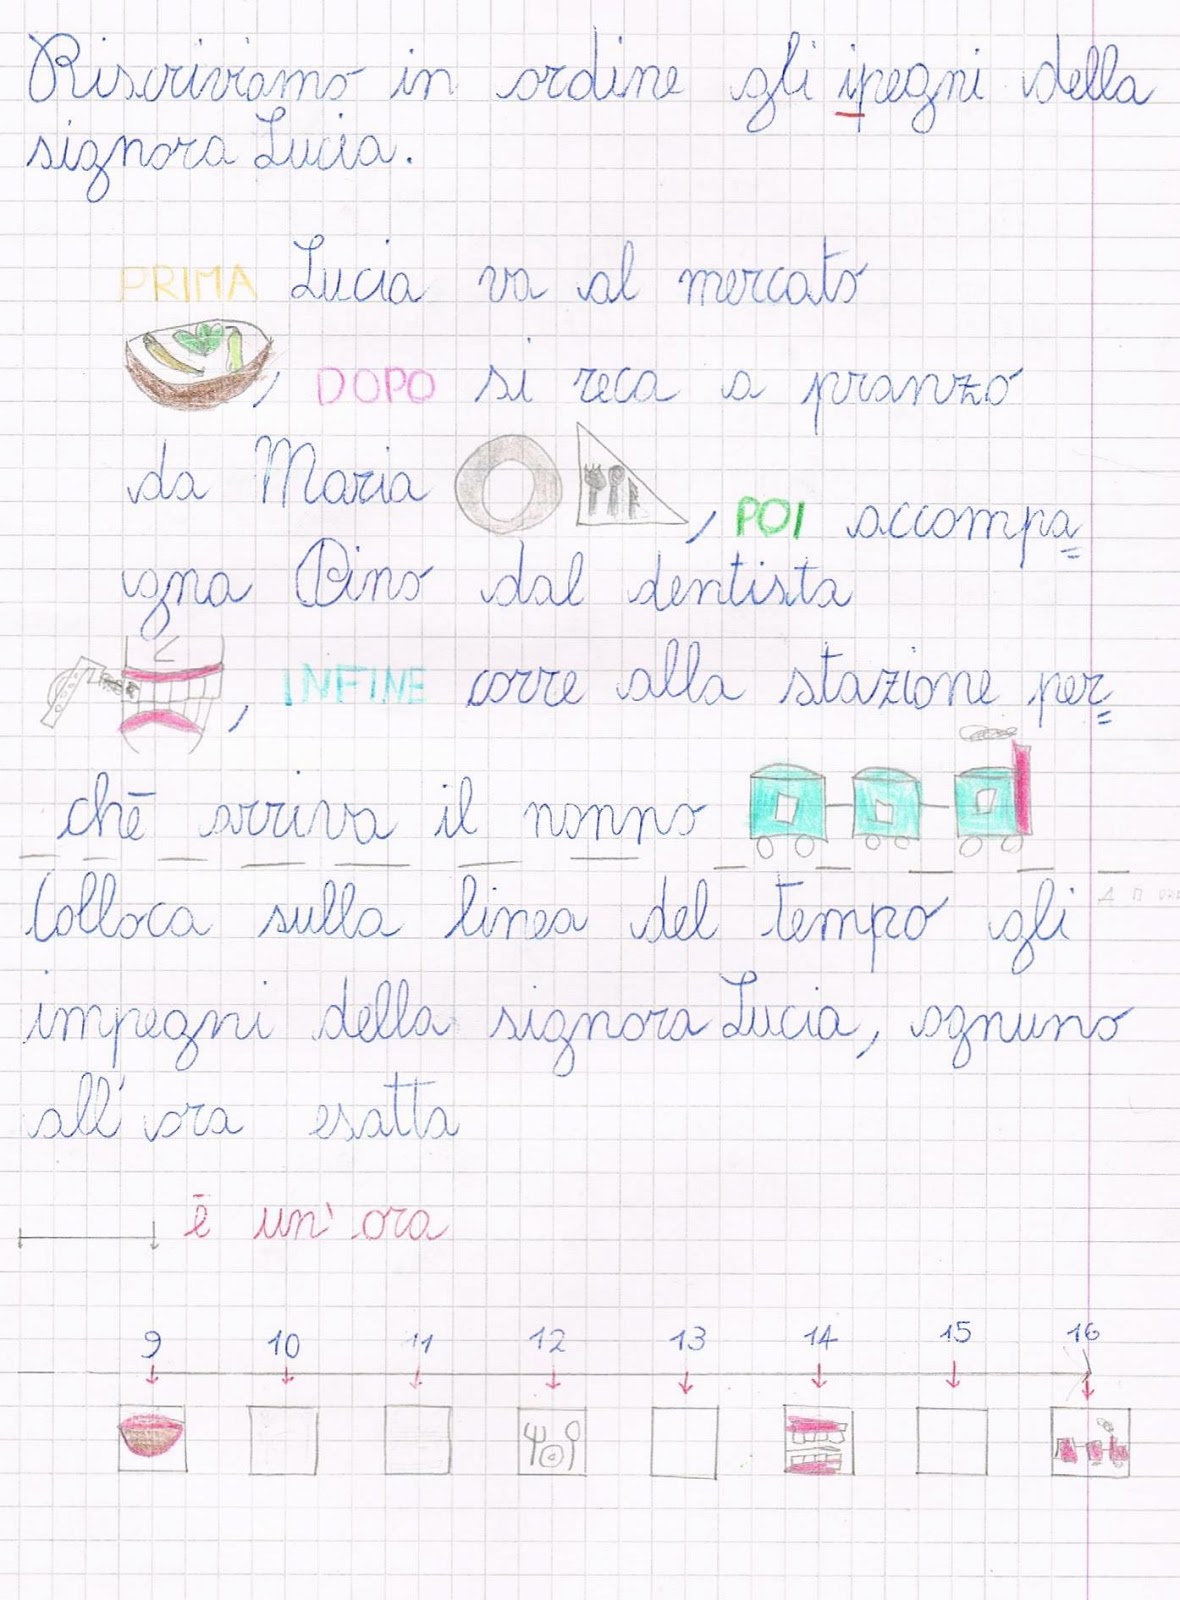 Riscriviamo in ordine gli ipegni della
signora Lucia.
PRIMA Lucia va al mercato
, DOPO si reca a pranzo
da Maria , POI accompa=
gna Pino dal dentista
, INFINE corre alla stazione per=
ché arriva il nonno
Colloca sulla linea del tempo gli
impegni della signora Lucia, ognuno
all'ora esatta
è un'ora
9 10 11 12 13 14 15 16